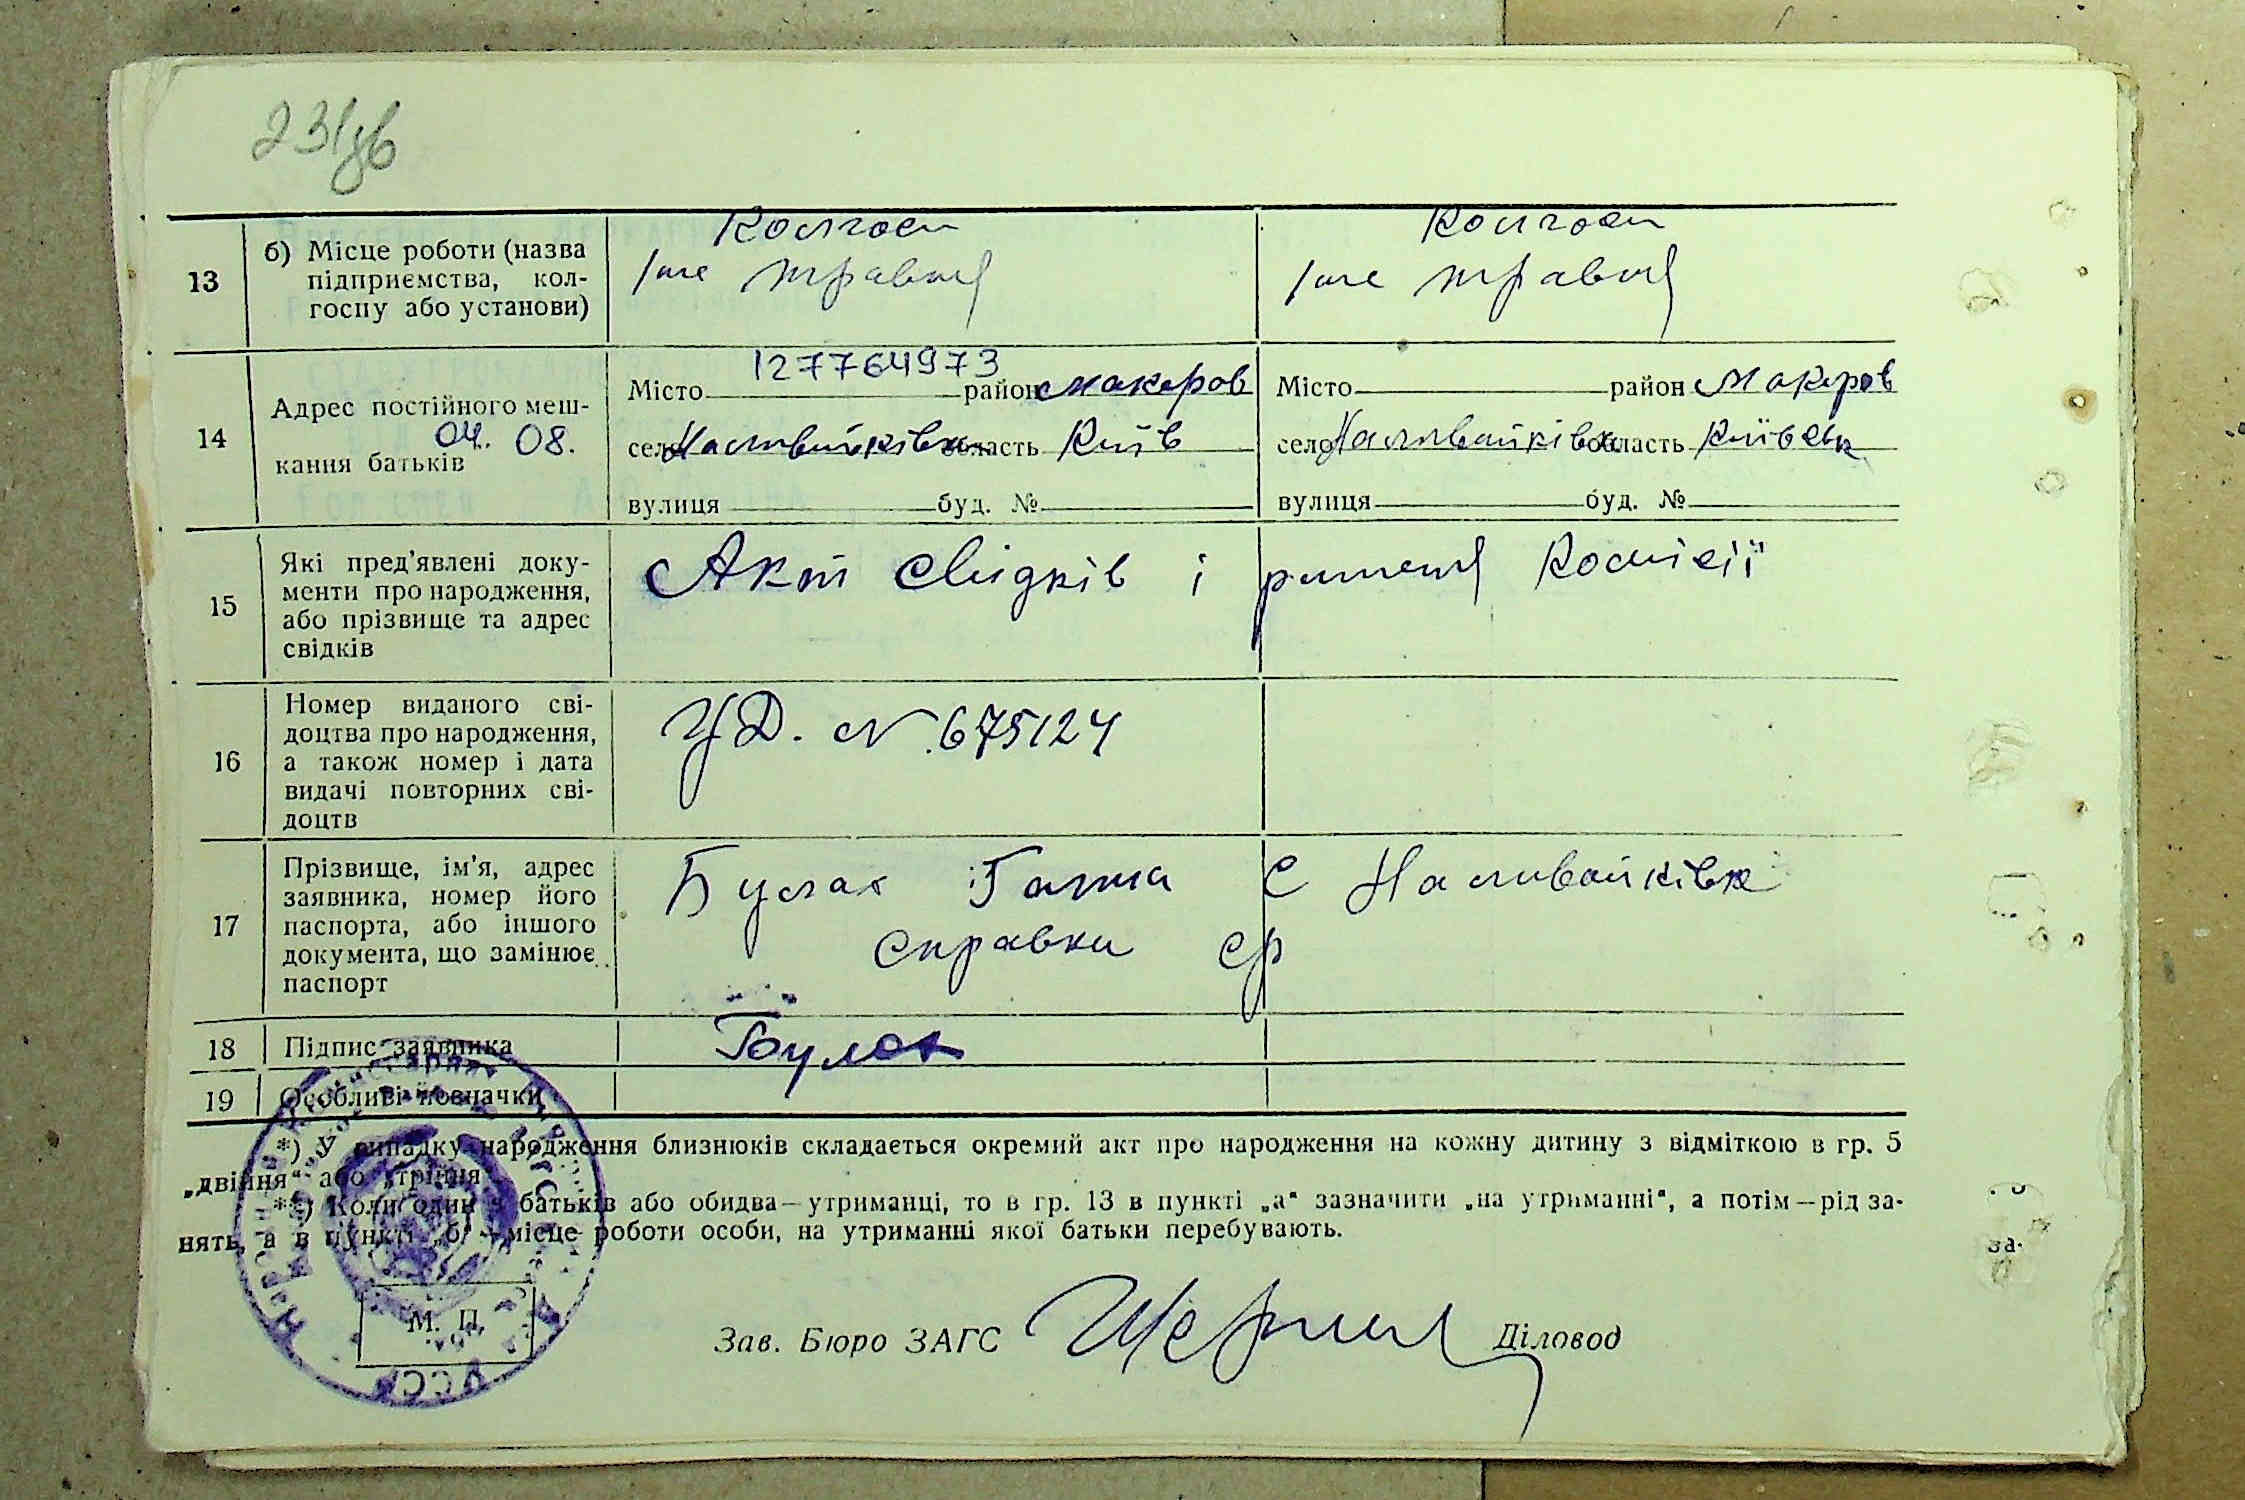 231зв
13
б) Місце роботи (назва
підприємства, кол-
госпу або установи)
Колгосп
1ше травня
Колгосп
1ше травня
14
Адрес постійного меш-
кання батьків
04. 08.
127764973
Місто район Макаров
село Наливайківка область Київ
вулиця буд. №
Місто район Макаров
село Наливайківка область Київськ
вулиця буд. №
15
Які пред'явлені доку-
менти про народження,
або прізвище та адрес
свідків
Акт свидків і ришения Комісії
16
Номер виданого сві-
доцтва про народження,
а також номер і дата
видачі повторних сві-
доцтв
УД. N 675124
17
Прізвище, ім'я, адрес
заявника, номер його
паспорта, або іншого
документа, що замінює
паспорт
Булах Ганна С Наливайківка
справка ср
18
Підпис заявника
Булах
19
Особливі позначки
*) У випадку народження близнюків складається окремий акт про народження на кожну дитину з відміткою в гр. 5
„двійня“ або „трійня
**) Коли один з батьків або обидва—утриманці, то в гр. 13 в пункті „а“ зазначити „на утриманні“, а потім—рід за-
нять, а в пункті „б“—місце роботи особи, на утриманні якої батьки перебувають.
М. П.
Зав. Бюро ЗАГС
Діловод
УССР
за-